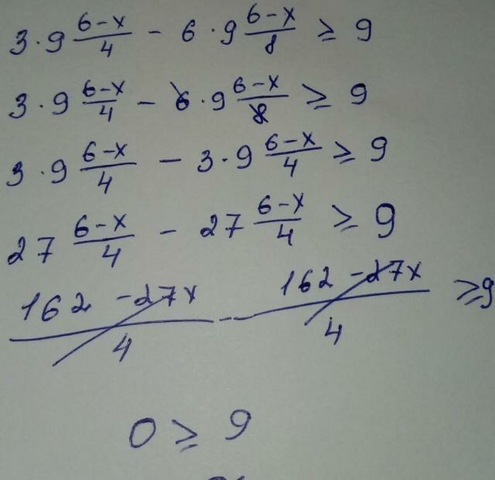 3 · 9 (6-x)/4 - 6 · 9 (6-x)/8 ≥ 9
3 · 9 (6-x)/4 - 6 · 9 (6-x)/8 ≥ 9
3 · 9 (6-x)/4 - 3 · 9 (6-x)/4 ≥ 9
27 (6-x)/4 - 27 (6-x)/4 ≥ 9
(162 - 27x)/4 - (162 - 27x)/4 ≥ 9
0 ≥ 9